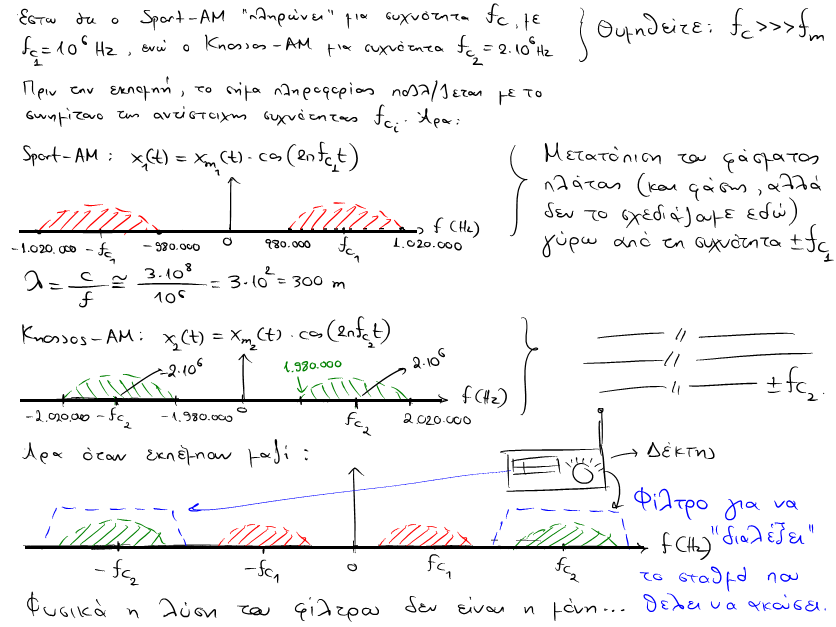 Έστω ότι ο Sport-AM "πληρώνει" μια συχνότητα fc₁ με
fc₁ = 10⁶ Hz, ενώ ο Knossos-AM μια συχνότητα fc₂ = 2·10⁶ Hz
Θυμηθείτε: fc >>> fm
Πριν την εκπομπή, το σήμα πληροφορίας πολλ/ζεται με το
συνημίτονο της αντίστοιχης συχνότητας fcᵢ. Άρα:
Sport-AM: x₁(t) = xm₁(t)·cos(2πfc₁t)
Μετατόπιση του φάσματος
πλάτους (και φάσης, αλλά
δεν το σχεδιάζουμε εδώ)
γύρω από τη συχνότητα ±fc₁
f(Hz)
-1.020.000 -fc₁ -980.000 0 980.000 fc₁ 1.020.000
λ = c/f ≅ 3·10⁸/10⁶ = 3·10² = 300 m
Knossos-AM: x₂(t) = xm₂(t)·cos(2πfc₂t)
-2·10⁶ 1.980.000 2·10⁶
f(Hz)
-2.020.000 -fc₂ -1.980.000 0 fc₂ 2.020.000
—— // ——
—— // ——
—— // —— ±fc₂
Άρα όταν εκπέμπουν μαζί:
→ Δέκτης
Φίλτρο για να
"διαλέξει"
το σταθμό που
θέλει να ακούσει.
f(Hz)
-fc₂ -fc₁ 0 fc₁ fc₂
Φυσικά η λύση του φίλτρου δεν είναι η μόνη...